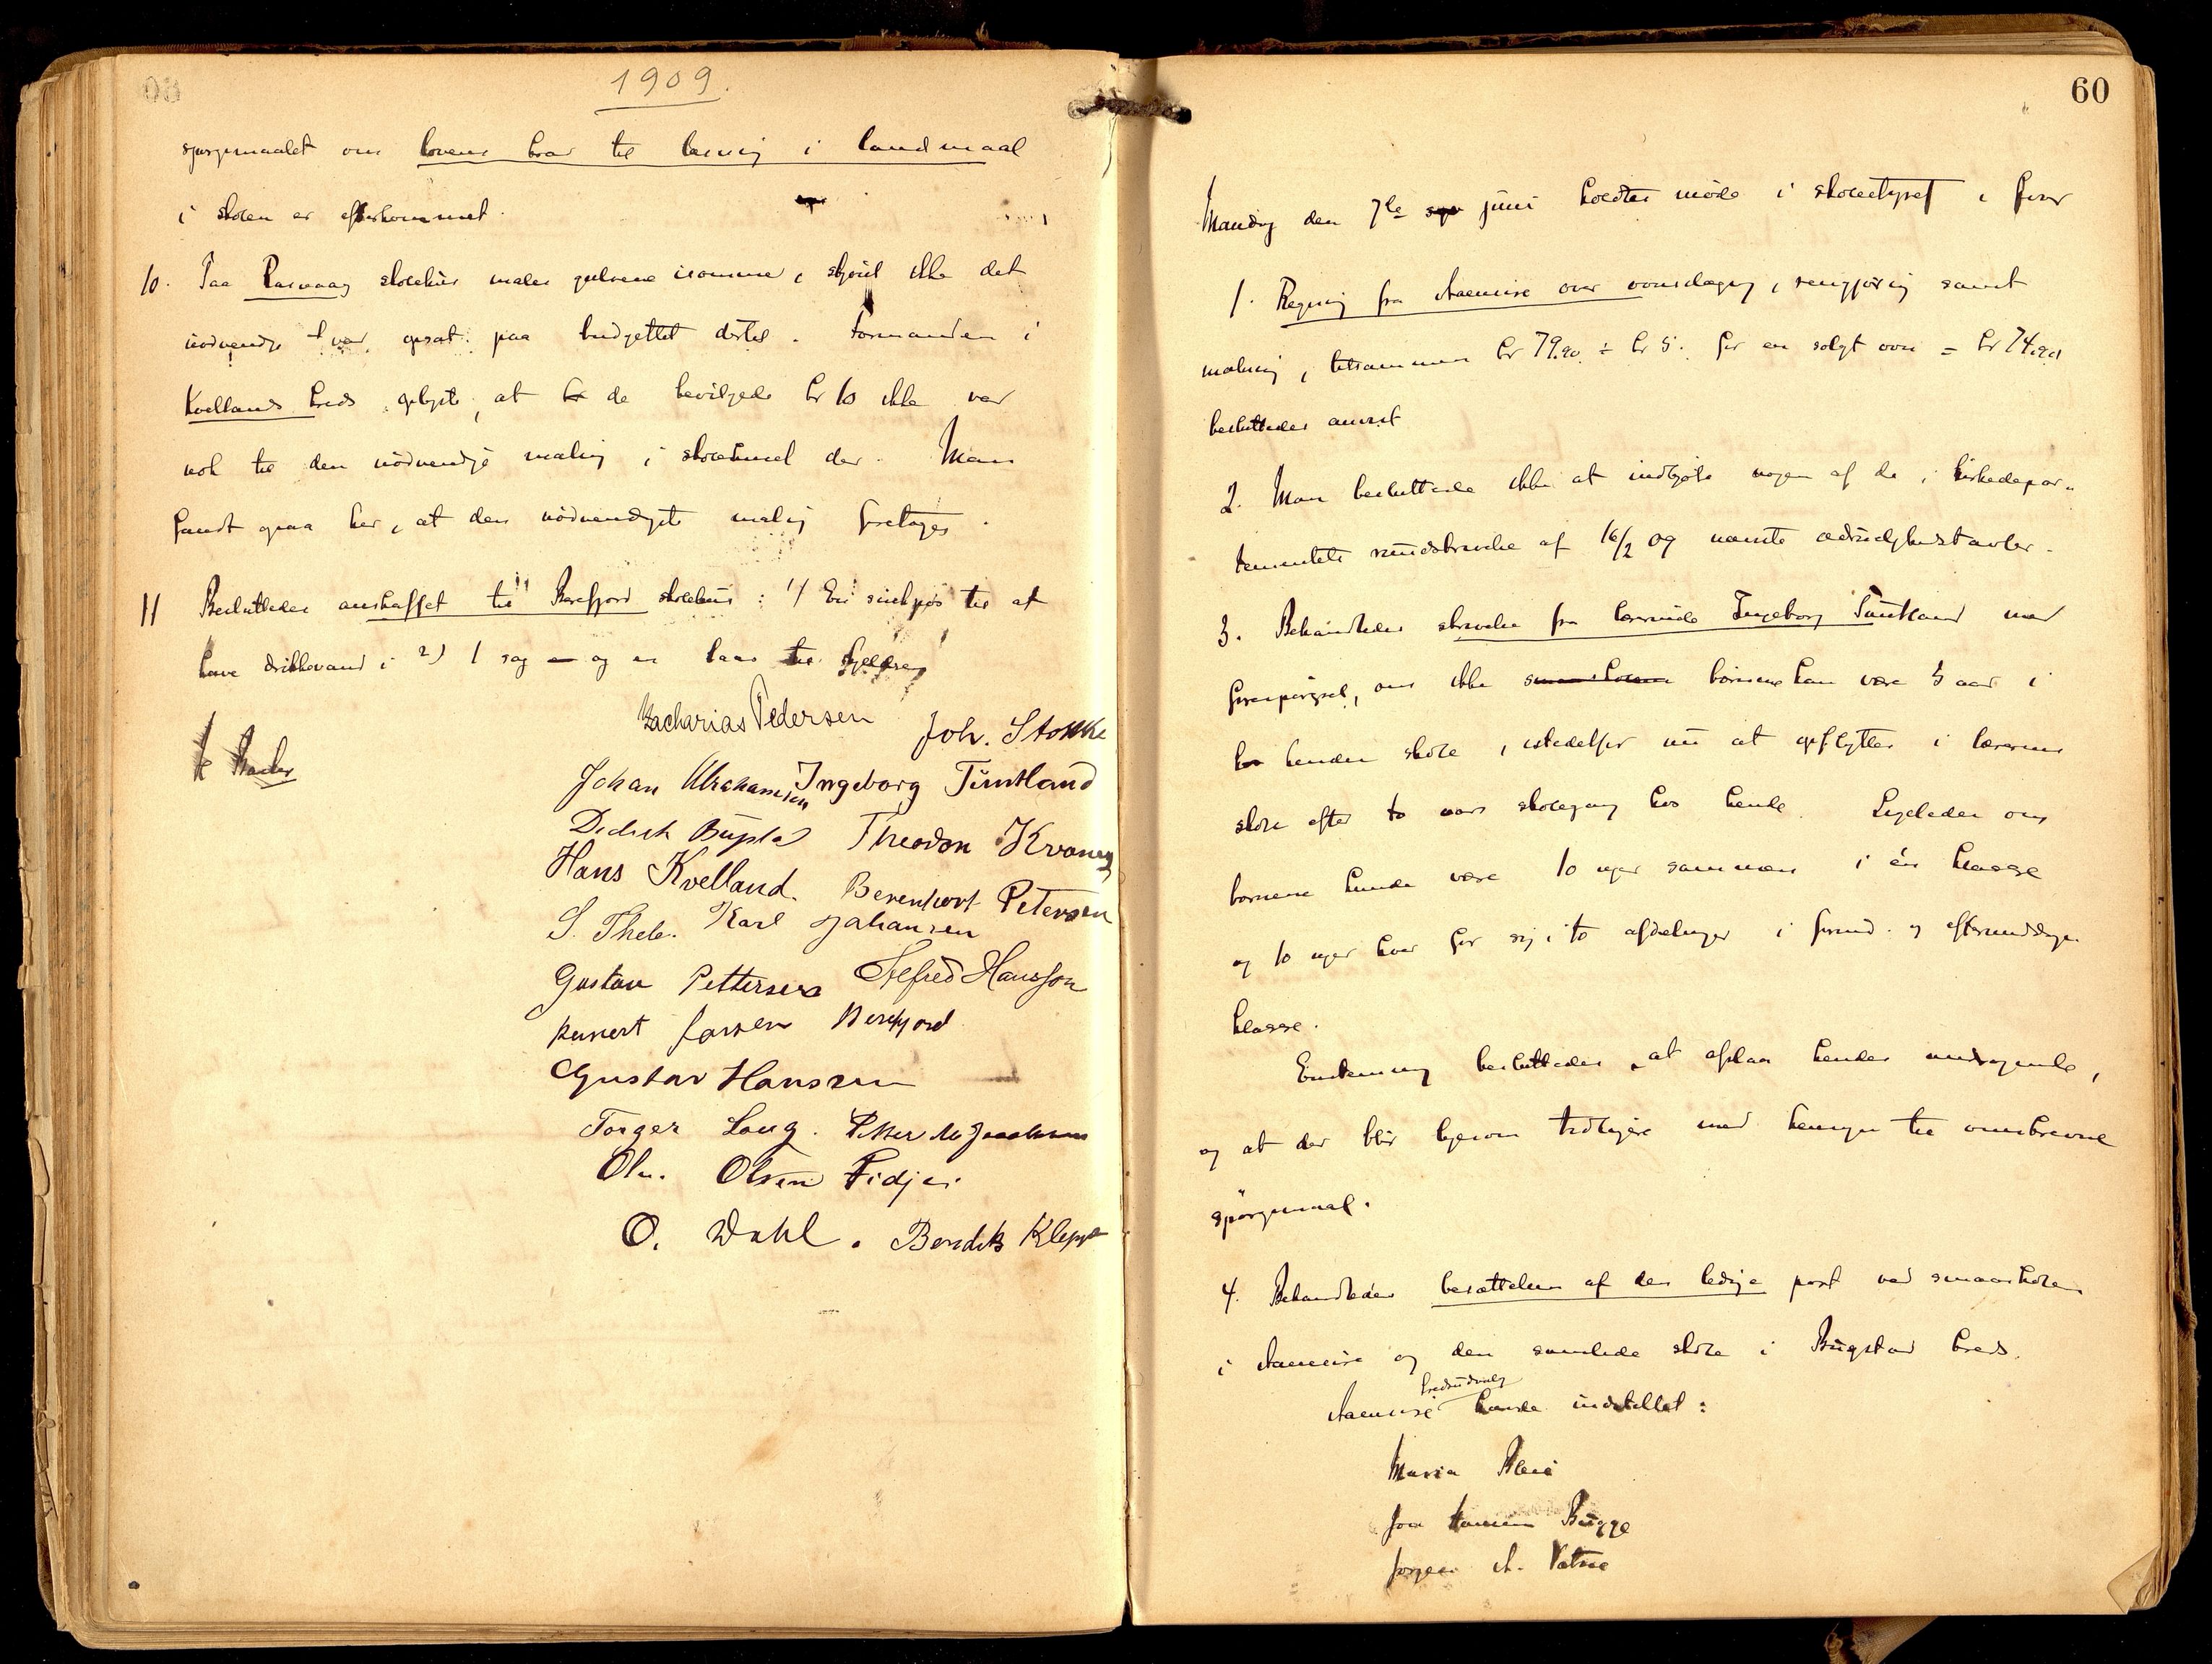 1909.
spørgsmaalet om lovens krav til læsning i landsmaal
i skolen er efterkommet.
10. Paa Rasvaag skolehus males gulvene isommer, skjønt ikke det
nødvendige var opsat paa budgettet dertil. Formanden i
Kvellands kreds oplyste, at de bevilgede kr 10 ikke var
nok til den nødvendige maling i skolehuset der. Man
fandt ogsaa her, at den nødvendigste maling foretages.
11 Besluttedes anskaffet til Berefjord skolehus: 1) En sinkpøs til at
have drikkevand i 2) 1 sag og en laas til
Zacharias Pedersen Joh. Stokke
Johan Abrahamsen Ingeborg Tuntland
Didrik Bugstad Theodor Kvanvig
Hans Kvelland. Berenhart Petersen
S. Thele. Karl Johansen
Gustav Pettersen Alfred Hansson
Reinert Jansen Berefjord
Gustav Hanssen
Torger Log. Petter M Jacobsen
Ole. Olsen Fidje.
O. Dahl. Bendik Klepp
60
Mandag den 7de juni holdtes møde i skolestyret i Herad
1. Regning fra Aaenesire over ovnsdagning, rengjøring samt
maling, tilsammen kr 79.20 ÷ kr 5. for en solgt ovn = kr 74.20
besluttedes anvist
2. Man besluttede ikke at indkjøbe nogen af de i kirkedepar-
tementets rundskrivelse af 16/2 09 nævnte ædruelighedstavler.
3. Behandledes skrivelse fra lærerinde Ingeborg Tuntland med
forespørgsel, om ikke børnene kan være 3 aar i
hendes skole, istedetfor nu at opflyttes i lærerens
skole efter to aars skolegang hos hende. Ligeledes om
børnene kunde være 10 uger sammen i én klasse
og 10 uger hver for sig i to afdelinger i formid. og eftermiddags
klasse.
Enstemmig besluttedes at afslaa hendes andragende,
og at det blir ligesom tidligere med hensyn til omskrevne
spørgsmaal.
4. Behandledes besættelsen af den ledige post ved smaaskolen
i Aaenesire og den samlede skole i Bugstad kreds.
Aaenesire kredsudvalg havde indstillet:
Maria
Bugge
Jørgen A. Vatne